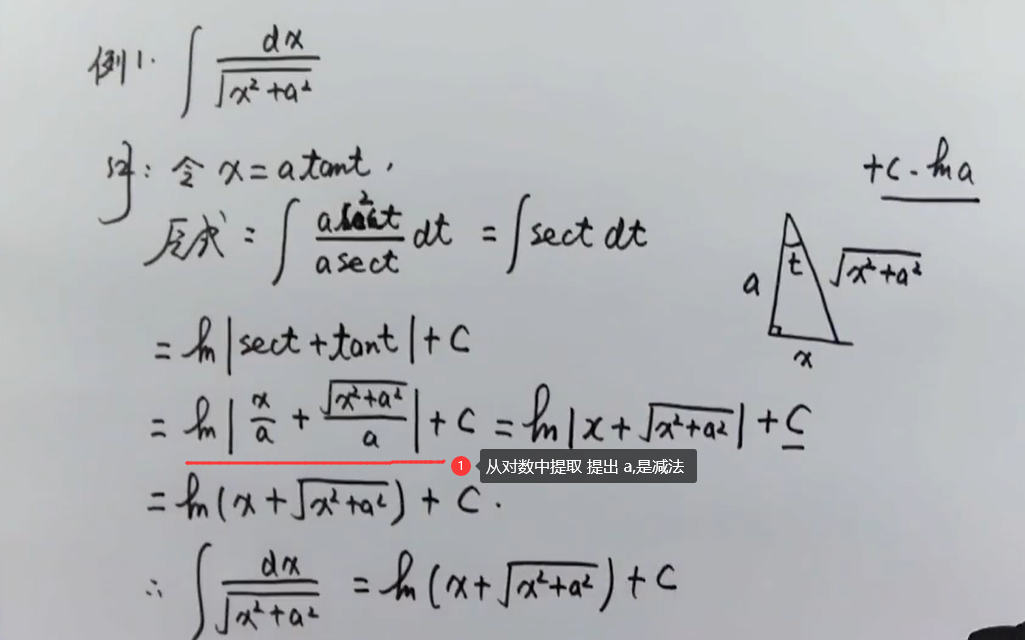 例1. ∫ dx/√(x²+a²)
解: 令 x = a tant,
+C - ln a
原式 = ∫ (a sec²t)/(a sect) dt = ∫ sect dt
a t √(x²+a²)
x
= ln|sect + tant| + C
= ln|x/a + √(x²+a²)/a| + C = ln|x + √(x²+a²)| + C
1 从对数中提取 提出 a,是减法
= ln(x + √(x²+a²)) + C.
∴ ∫ dx/√(x²+a²) = ln(x + √(x²+a²)) + C